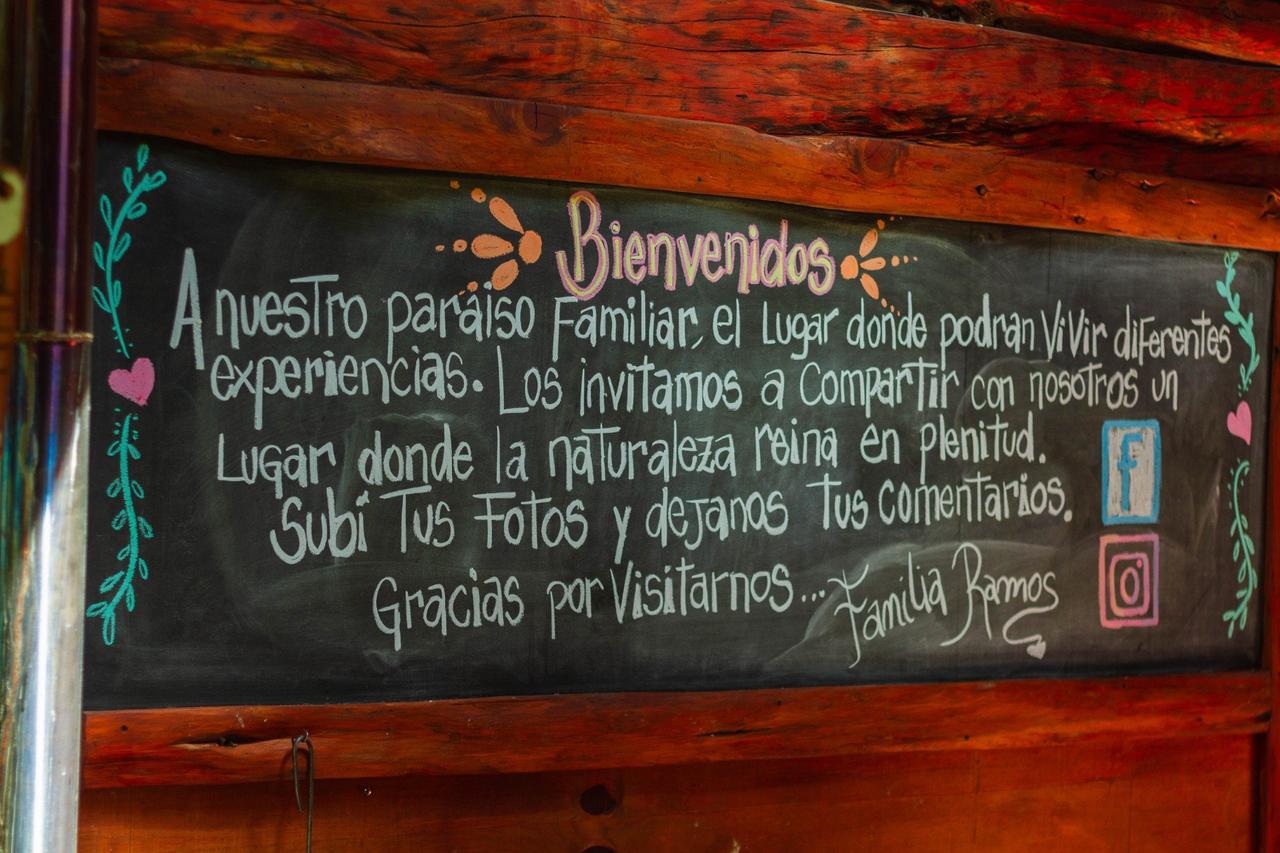 Bienvenidos
A nuestro paraiso Familiar, el Lugar donde podran ViVir diFerentes
experiencias. Los invitamos a Compartir con nosotros un
Lugar donde la naturaleza reina en plenitud.
Subí Tus Fotos y dejanos Tus comentarios.
Gracias por Visitarnos... Familia Ramos
f